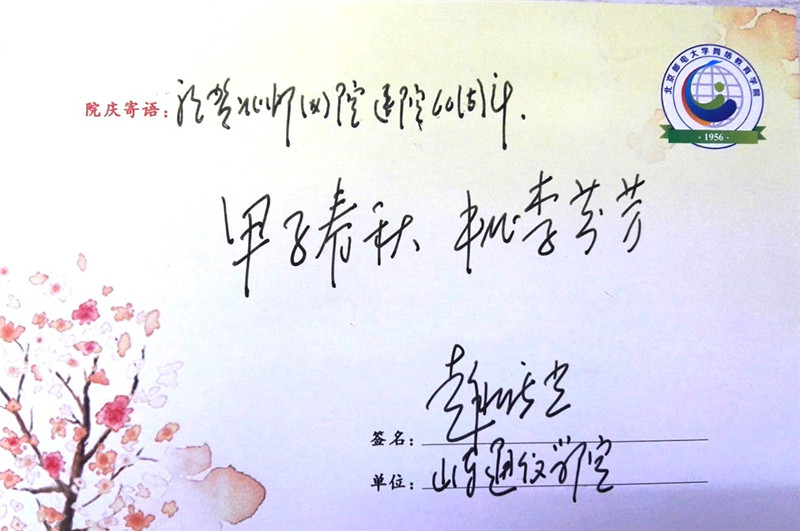 北京邮电大学网络教育学院
·1956·
院庆寄语：祝贺北邮网院建院60周年.
甲子春秋 桃李芬芳
签名：
单位：山东通信学院